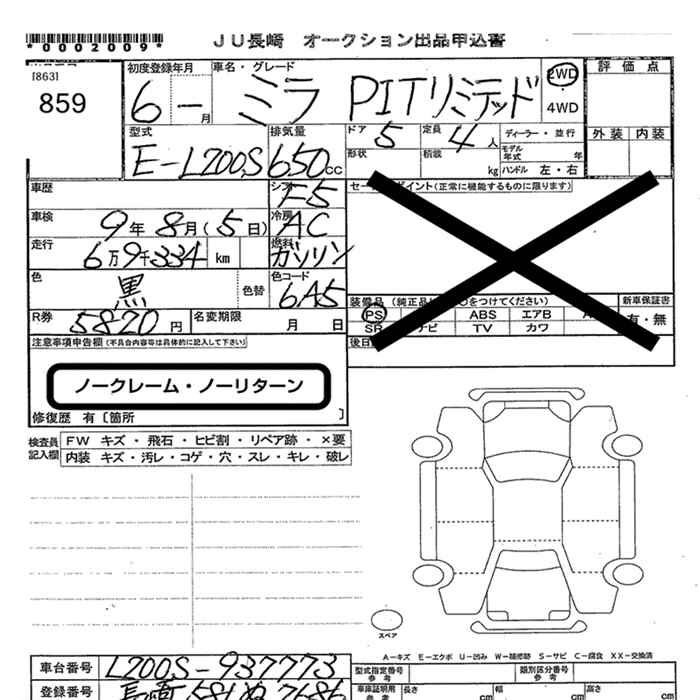 *0002009*
JU長崎 オークション出品申込書
[863]
859
初度登録年月
6 ー 月
車名・グレード
ミラ PITリミテッド
2WD
4WD
評価点
外装 内装
型式
E-L200S
排気量
650cc
ドア 5
定員 4人
形状
積載 kg
ディーラー・並行
モデル年式 年
ハンドル 左・右
車歴
シフト F5
車検 9年8月(5日)
冷房 AC
走行 6万9千334 km
燃料 ガソリン
色 黒
色替
色コード 6A5
R券 5820円
名変期限 月 日
(正常に機能するものに限ります)
装備品(純正品 をつけてください)
新車保証書
有・無
PS ABS エアB
SR ナビ TV カワ
後日
注意事項申告欄(不具合内容等は具体的に記入して下さい)
ノークレーム・ノーリターン
修復歴 有〔箇所 〕
検査員記入欄
FW キズ・飛石・ヒビ割・リペア跡・×要
内装 キズ・汚レ・コゲ・穴・スレ・キレ・破レ
スペア
A-キズ E-エクボ U-凹み W-補修跡 S-サビ C-腐食 XX-交換済
車台番号 L200S-937773
型式指定番号 参考
類別区分番号 参考
登録番号 長崎 581 ぬ 7686
車庫証明用 参考
長さ cm 幅 cm 高さ cm